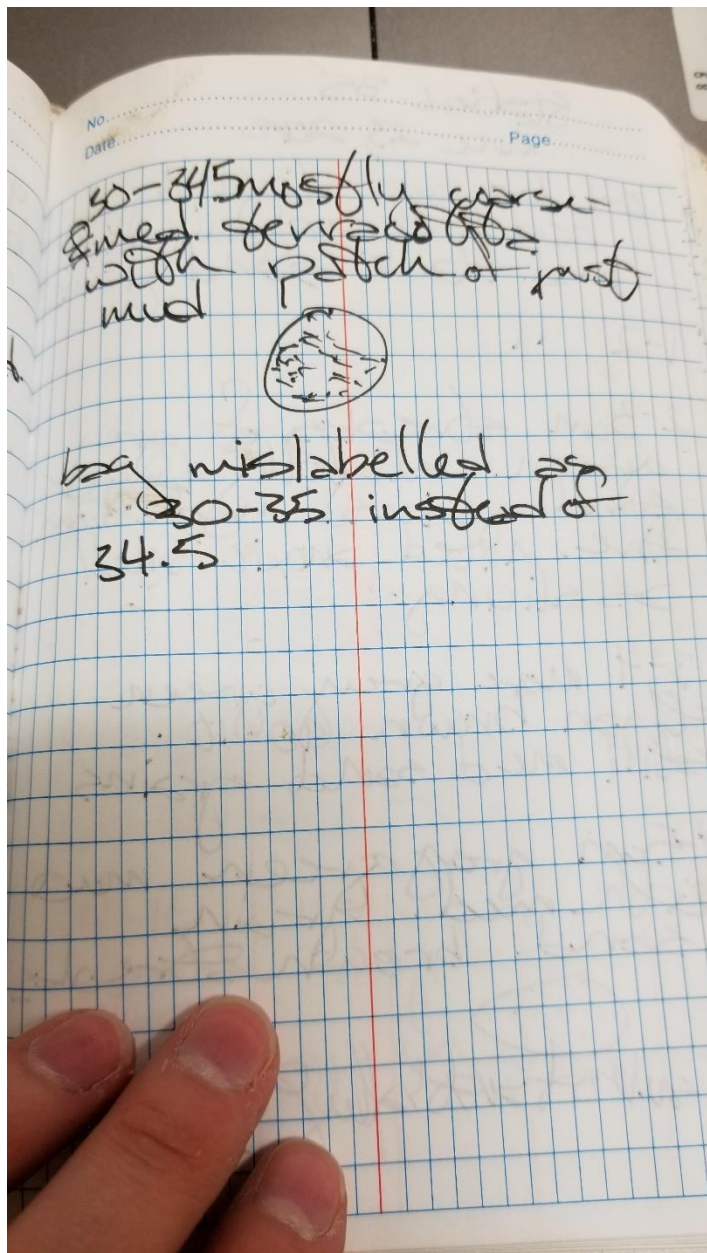 No.
Date
Page
30-345 mostly coarse-
& med. terracotta
with patch of just
mud
bag mislabelled as
30-35 instead of
34.5